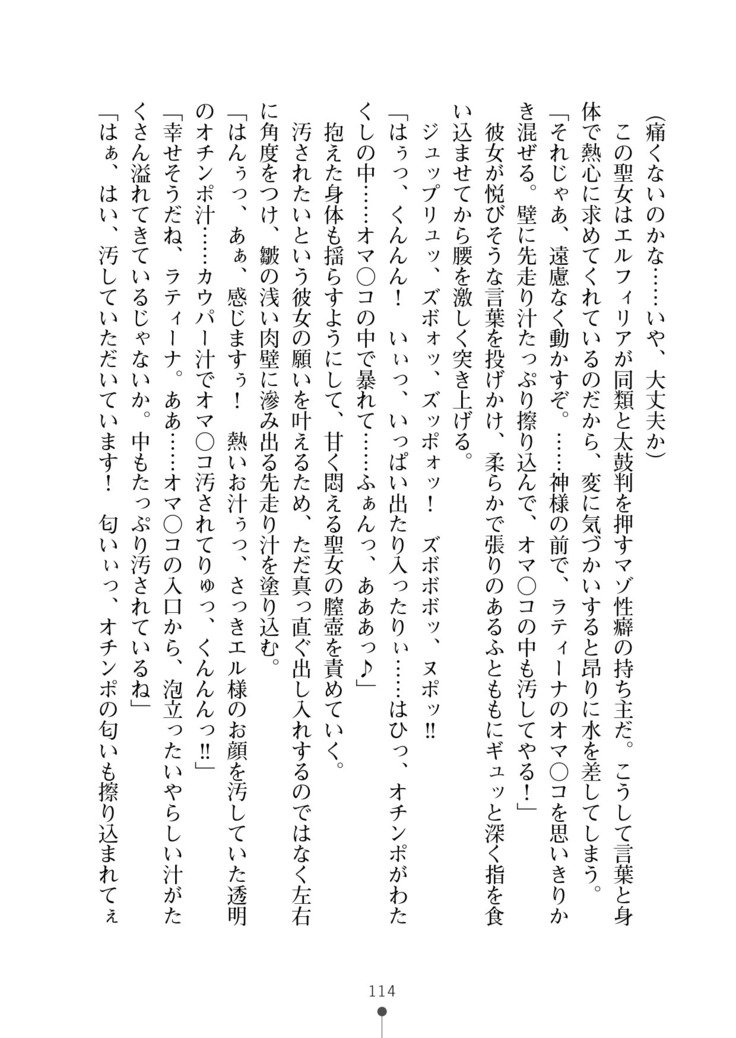 （痛くないのかな……いや、大丈夫か）
この聖女はエルフィリアが同類と太鼓判を押すマゾ性癖の持ち主だ。こうして言葉と身
体で熱心に求めてくれているのだから、変に気づかいすると昂りに水を差してしまう。
「それじゃあ、遠慮なく動かすぞ。……神様の前で、ラティーナのオマ〇コを思いきりか
き混ぜる。壁に先走り汁たっぷり擦り込んで、オマ〇コの中も汚してやる！」
彼女が悦びそうな言葉を投げかけ、柔らかで張りのあるふとももにギュッと深く指を食
い込ませてから腰を激しく突き上げる。
ジュップリュッ、ズボォッ、ズッポォッ！　ズボボボッ、ヌポッ!!
「はぅっ、くんんん！　いぃっ、いっぱい出たり入ったりぃ……はひっ、オチンポがわた
くしの中……オマ〇コの中で暴れて……ふぁんっ、あああっ♪」
抱えた身体も揺らすようにして、甘く悶える聖女の膣壺を責めていく。
汚されたいという彼女の願いを叶えるため、ただ真っ直ぐ出し入れするのではなく左右
に角度をつけ、皺の浅い肉壁に滲み出る先走り汁を塗り込む。
「はんぅっ、あぁ、感じますぅ！　熱いお汁ぅっ、さっきエル様のお顔を汚していた透明
のオチンポ汁……カウパー汁でオマ〇コ汚されてりゅっ、くんんんっ!!」
「幸せそうだね、ラティーナ。ああ……オマ〇コの入口から、泡立ったいやらしい汁がた
くさん溢れてきているじゃないか。中もたっぷり汚されているね」
「はぁ、はい、汚していただいています！　匂いぃっ、オチンポの匂いも擦り込まれてぇ
114